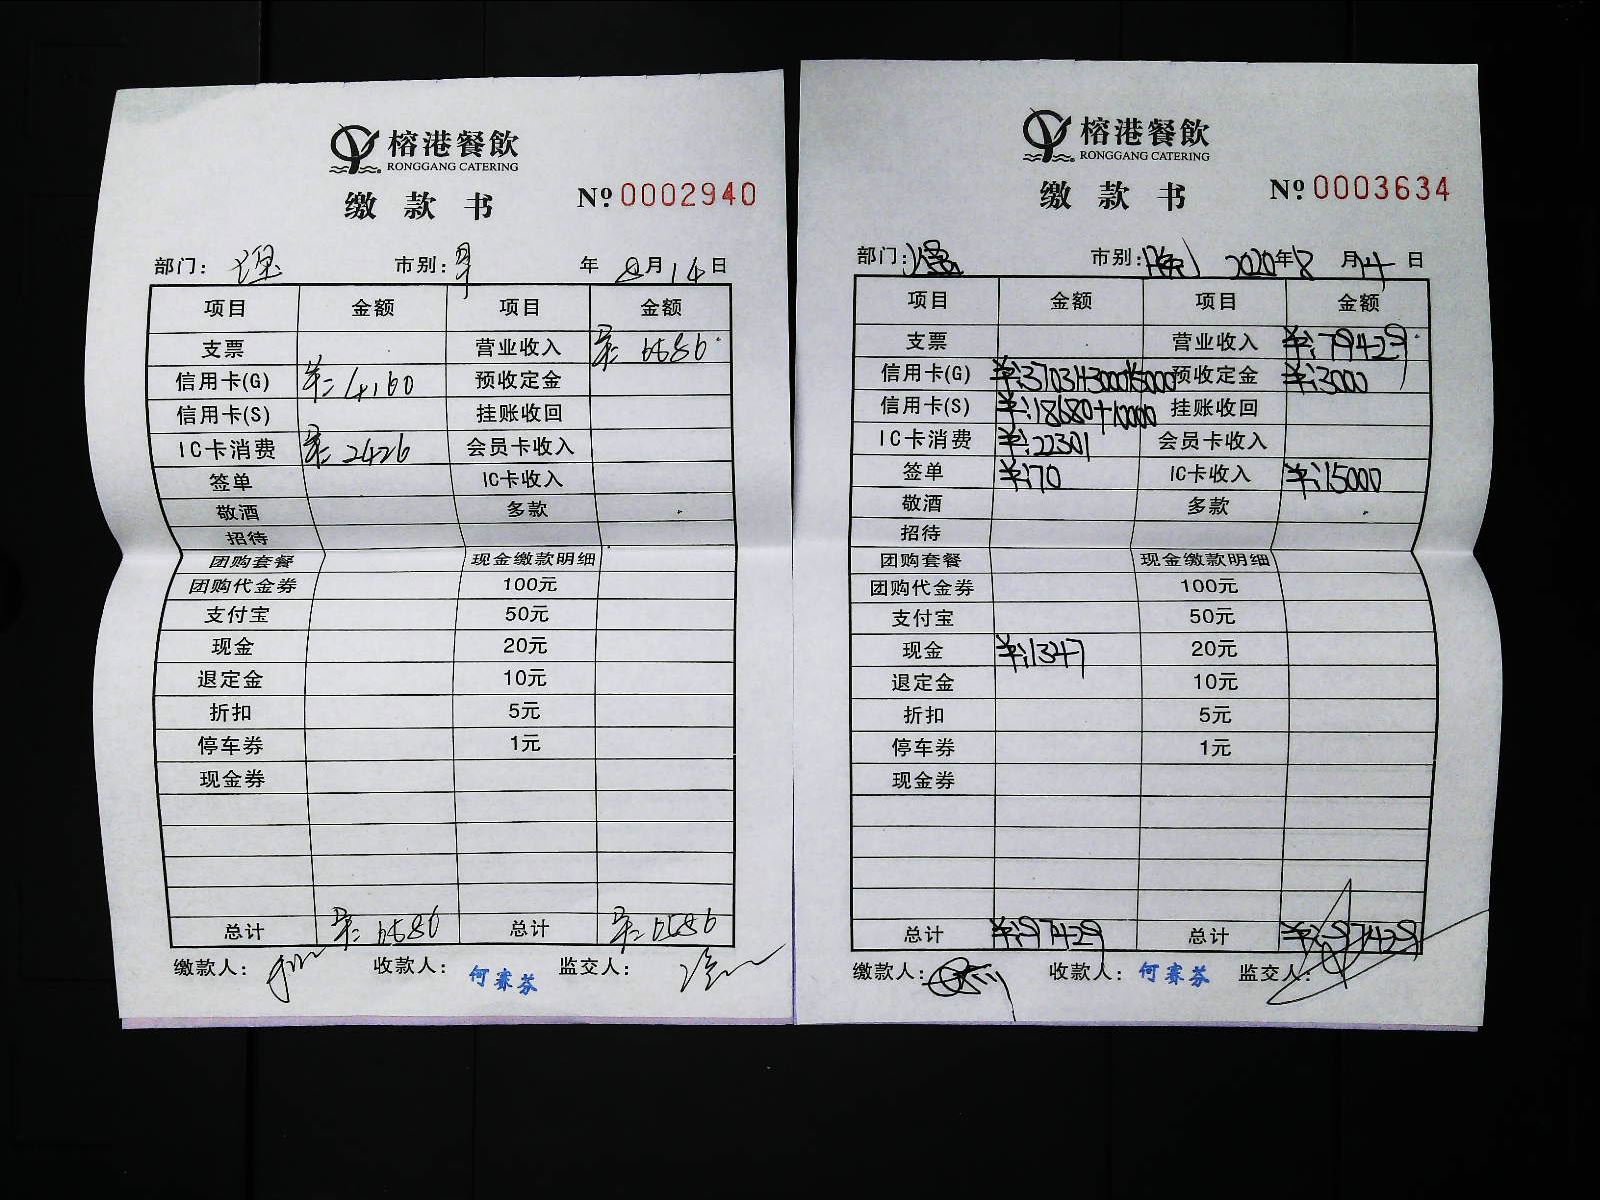 榕港餐飲
RONGGANG CATERING
缴款书 № 0002940
部门： 市别：早 年 8月14日
项目 金额 项目 金额
支票 营业收入 ¥: 6586
信用卡(G) ¥: 4160 预收定金
信用卡(S) 挂账收回
IC卡消费 ¥: 2426 会员卡收入
签单 IC卡收入
敬酒 多款
招待
团购套餐 现金缴款明细
团购代金券 100元
支付宝 50元
现金 20元
退定金 10元
折扣 5元
停车券 1元
现金券
总计 ¥: 6586 总计 ¥: 6586
缴款人： 收款人： 何赛芬 监交人：
榕港餐飲
RONGGANG CATERING
缴款书 № 0003634
部门： 市别：晚 2020年8月14日
项目 金额 项目 金额
支票 营业收入 ¥:79429
信用卡(G) ¥:37031+3000+5000 预收定金 ¥:3000
信用卡(S) ¥:18680+10000 挂账收回
IC卡消费 ¥:22301 会员卡收入
签单 ¥:70 IC卡收入 ¥:15000
敬酒 多款
招待
团购套餐 现金缴款明细
团购代金券 100元
支付宝 50元
现金 ¥:1347 20元
退定金 10元
折扣 5元
停车券 1元
现金券
总计 ¥:97429 总计 ¥:97429
缴款人： 收款人： 何赛芬 监交人：